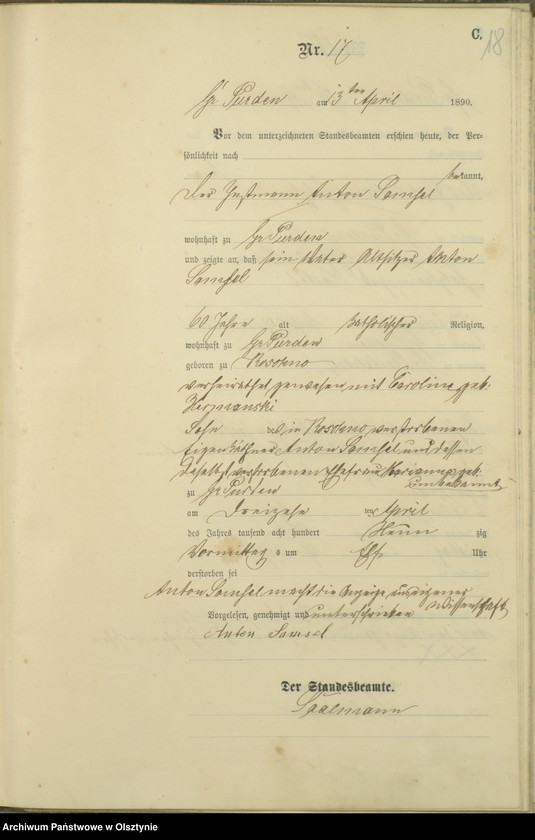 C.
18
Nr. 17
Gr Purden am 13ten April 1890.
Vor dem unterzeichneten Standesbeamten erschien heute, der Per-
sönlichkeit nach
bekannt,
Der Anton Samsel
wohnhaft zu Gr Purden
und zeigte an, daß sein Vater Altsitzer Anton
Samsel
60 Jahre alt katholischer Religion,
wohnhaft zu Gr Purden
geboren zu
verheirathet gewesen mit Caroline geb.
Hermanski
Sohn des in verstorbenen
Eigenkäthner Anton Samsel und dessen
daselbst verstorbenen Ehefrau Marianna geb.
unbekannt
zu Gr Purden
am Dreizehn ten April
des Jahres tausend acht hundert Neun zig
Vormittag s um Elf Uhr
verstorben sei
Anton Samsel macht die Anzeige aus eigener
Wissenschaft
Vorgelesen, genehmigt und unterschrieben
Anton Samsel
Der Standesbeamte.
Archiwum Państwowe w Olsztynie